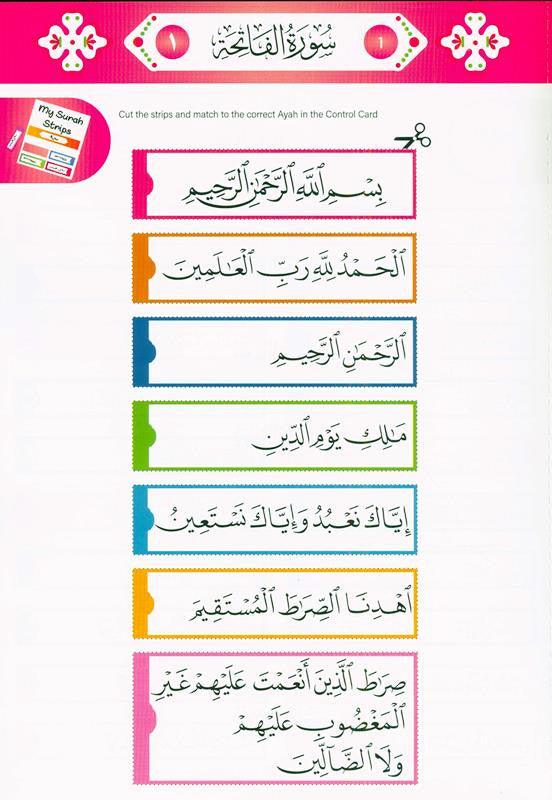 ١ سُورَةُ الفَاتِحَة 1
My Surah
Strips
Cut the strips and match to the correct Ayah in the Control Card
بِسْمِ ٱللَّهِ ٱلرَّحْمَٰنِ ٱلرَّحِيمِ
ٱلْحَمْدُ لِلَّهِ رَبِّ ٱلْعَٰلَمِينَ
ٱلرَّحْمَٰنِ ٱلرَّحِيمِ
مَٰلِكِ يَوْمِ ٱلدِّينِ
إِيَّاكَ نَعْبُدُ وَإِيَّاكَ نَسْتَعِينُ
ٱهْدِنَا ٱلصِّرَٰطَ ٱلْمُسْتَقِيمَ
صِرَٰطَ ٱلَّذِينَ أَنْعَمْتَ عَلَيْهِمْ غَيْرِ
ٱلْمَغْضُوبِ عَلَيْهِمْ
وَلَا ٱلضَّآلِّينَ